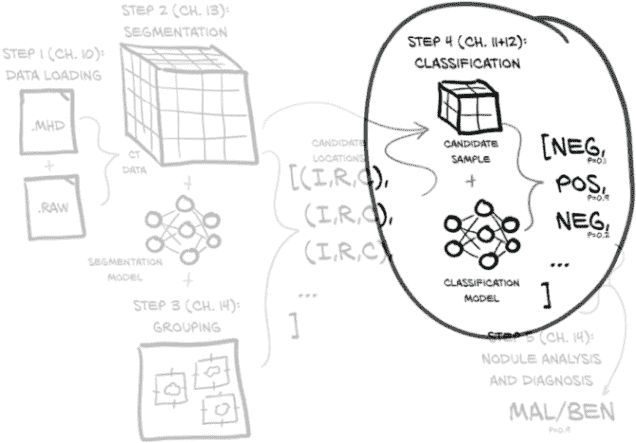 STEP 1 (CH. 10):
DATA LOADING
.MHD
+
.RAW
STEP 2 (CH. 13):
SEGMENTATION
CT
DATA
+
SEGMENTATION
MODEL
+
STEP 3 (CH. 14):
GROUPING
CANDIDATE
LOCATIONS
[(I,R,C),
(I,R,C),
(I,R,C),
...
]
STEP 4 (CH. 11+12):
CLASSIFICATION
CANDIDATE
SAMPLE
+
CLASSIFICATION
MODEL
[NEG,
P=0.1
POS,
P=0.9
NEG,
P=0.2
...
]
STEP 5 (CH. 14):
NODULE ANALYSIS
AND DIAGNOSIS
MAL/BEN
P=0.9